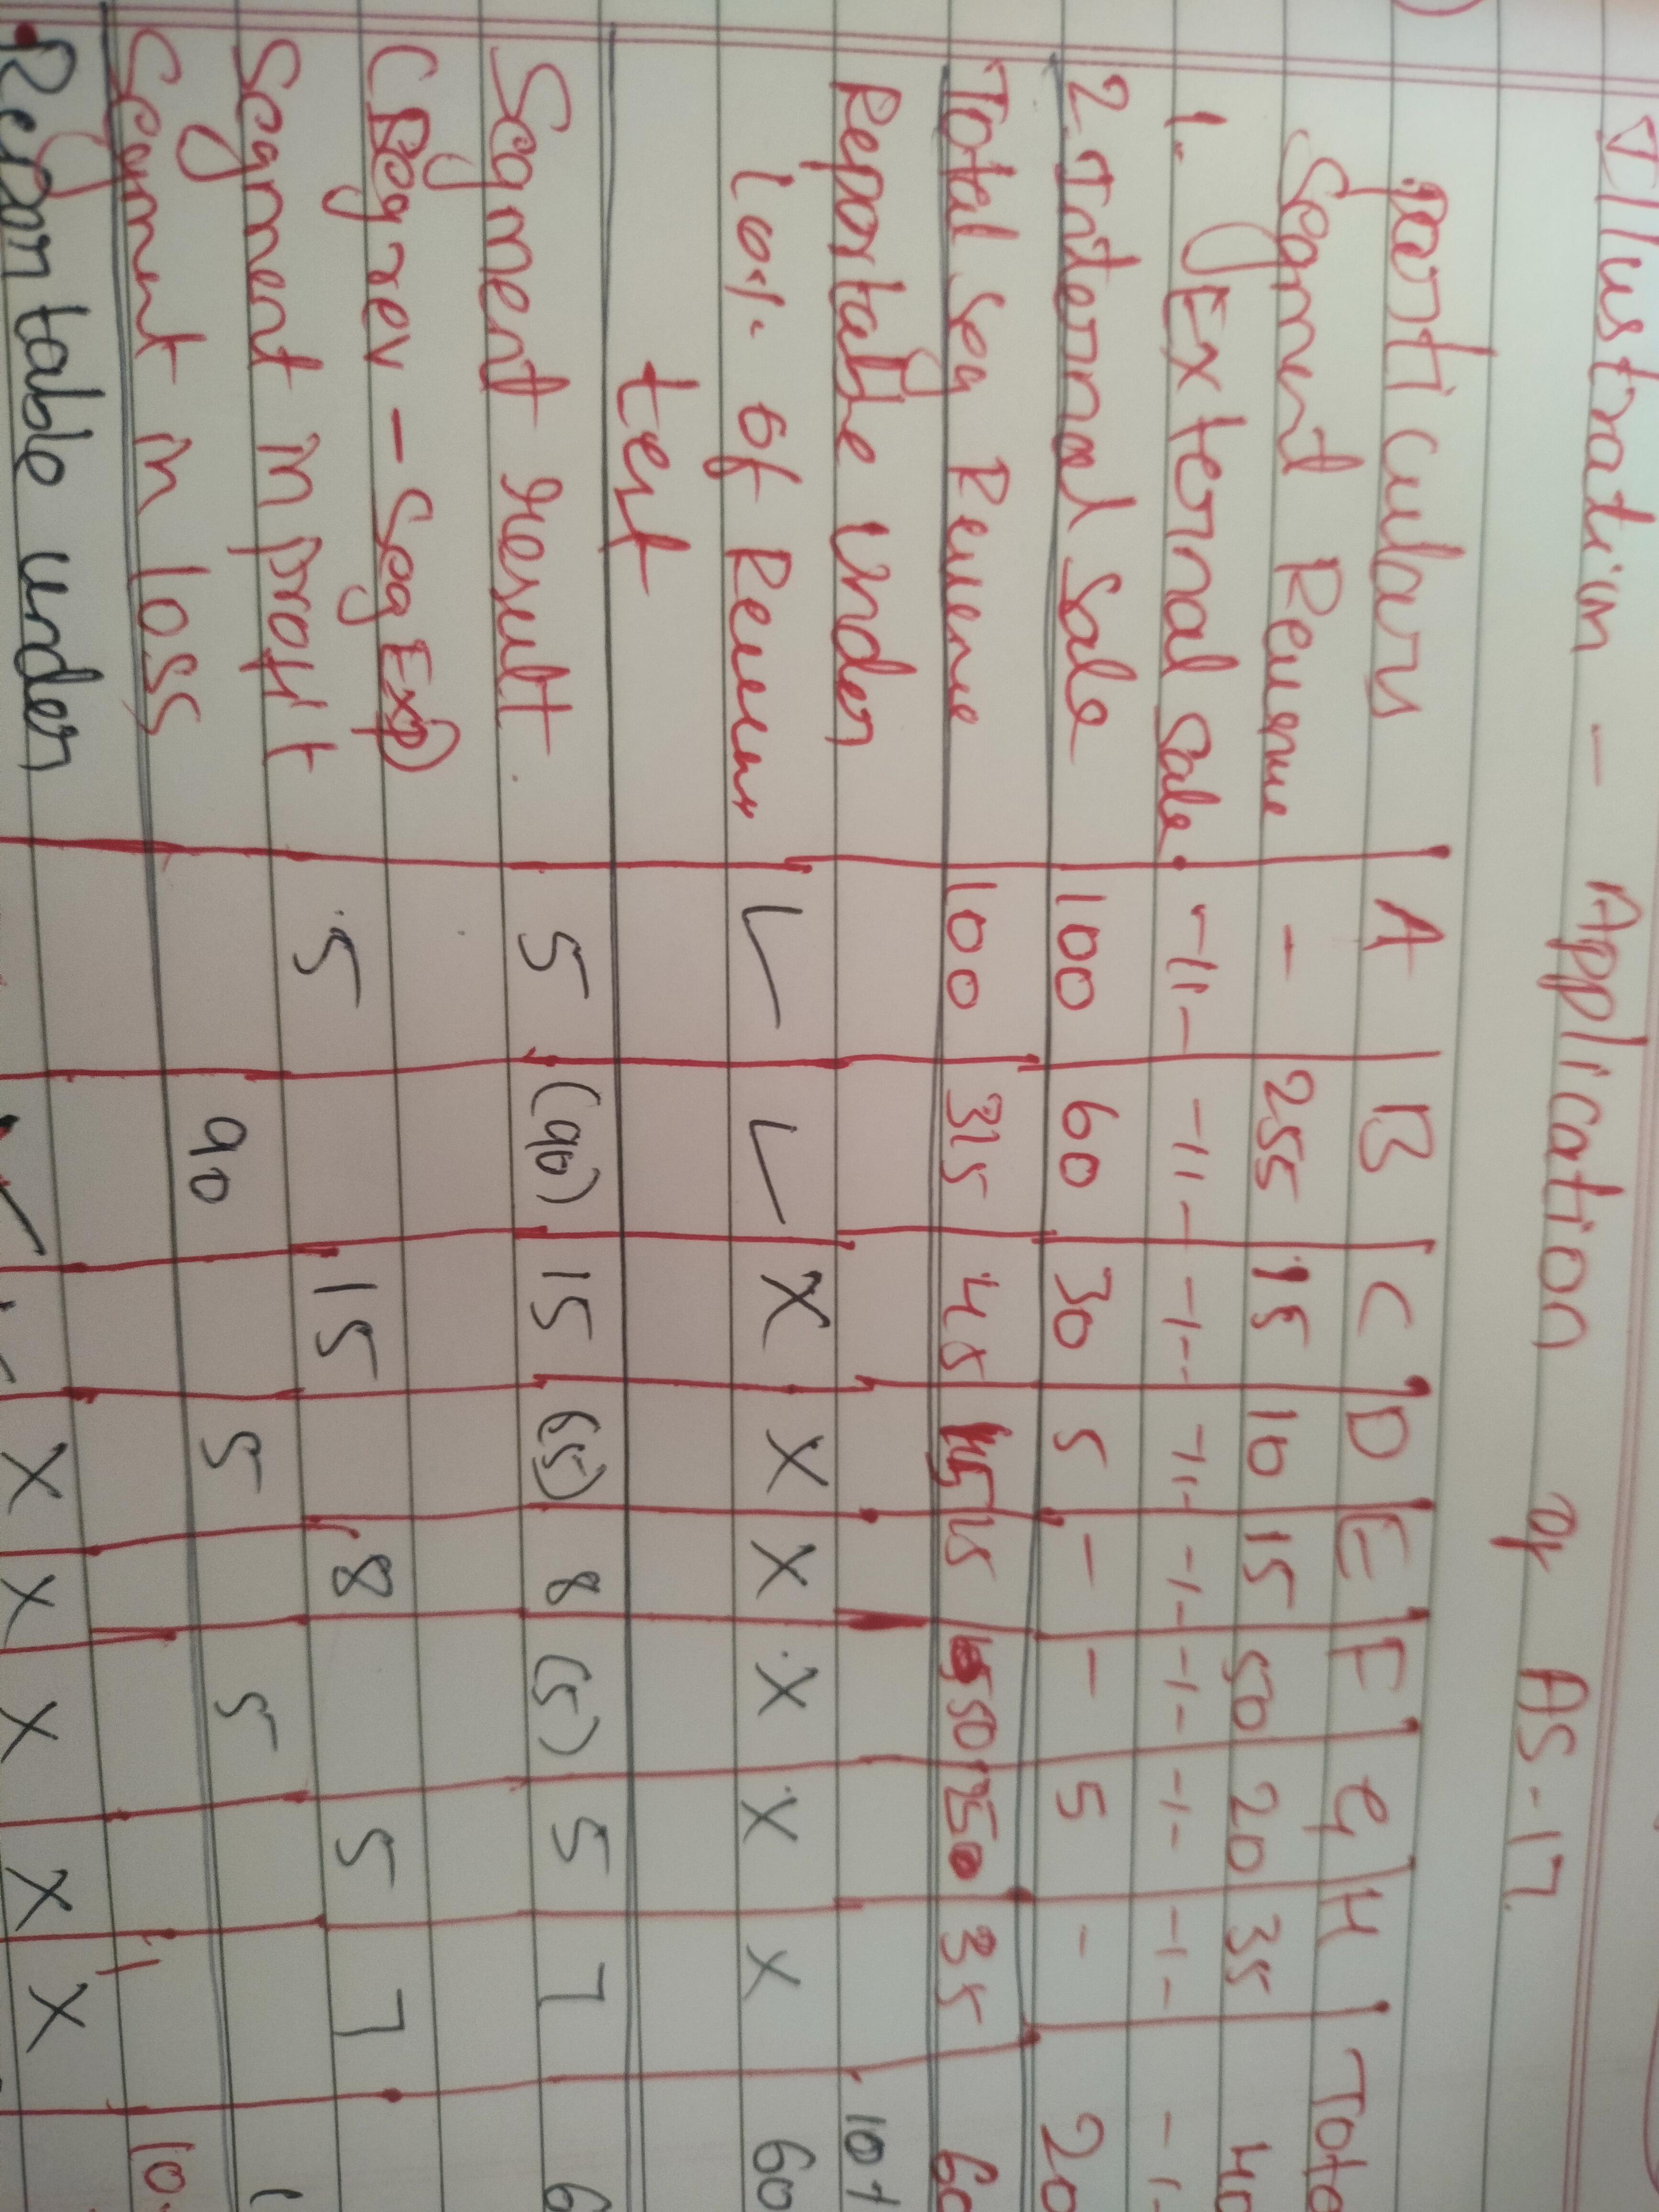 Illustration - Application of AS-17
Particulars A B C D E F G H Tota
Segment Revenue - 255 15 10 15 50 20 35 40
1. External Sale -11- -11- -1-- -11- -1- -1- -1- -1- -1-
2. Internal Sale 100 60 30 5 - - 5 - 20
Total Seg Revenue 100 315 45 15 15 50 25 35 60
Reportable Under 10%
10% of Revenue ✓ ✓ X X X X X X 60
test
Segment result 5 (90) 15 (5) 8 (5) 5 7 6
(Seg rev - Seg Exp)
Segment in profit 5 15 8 5 7
Segment in loss 90 5 5 10
Reportable under ✓ X X X X X